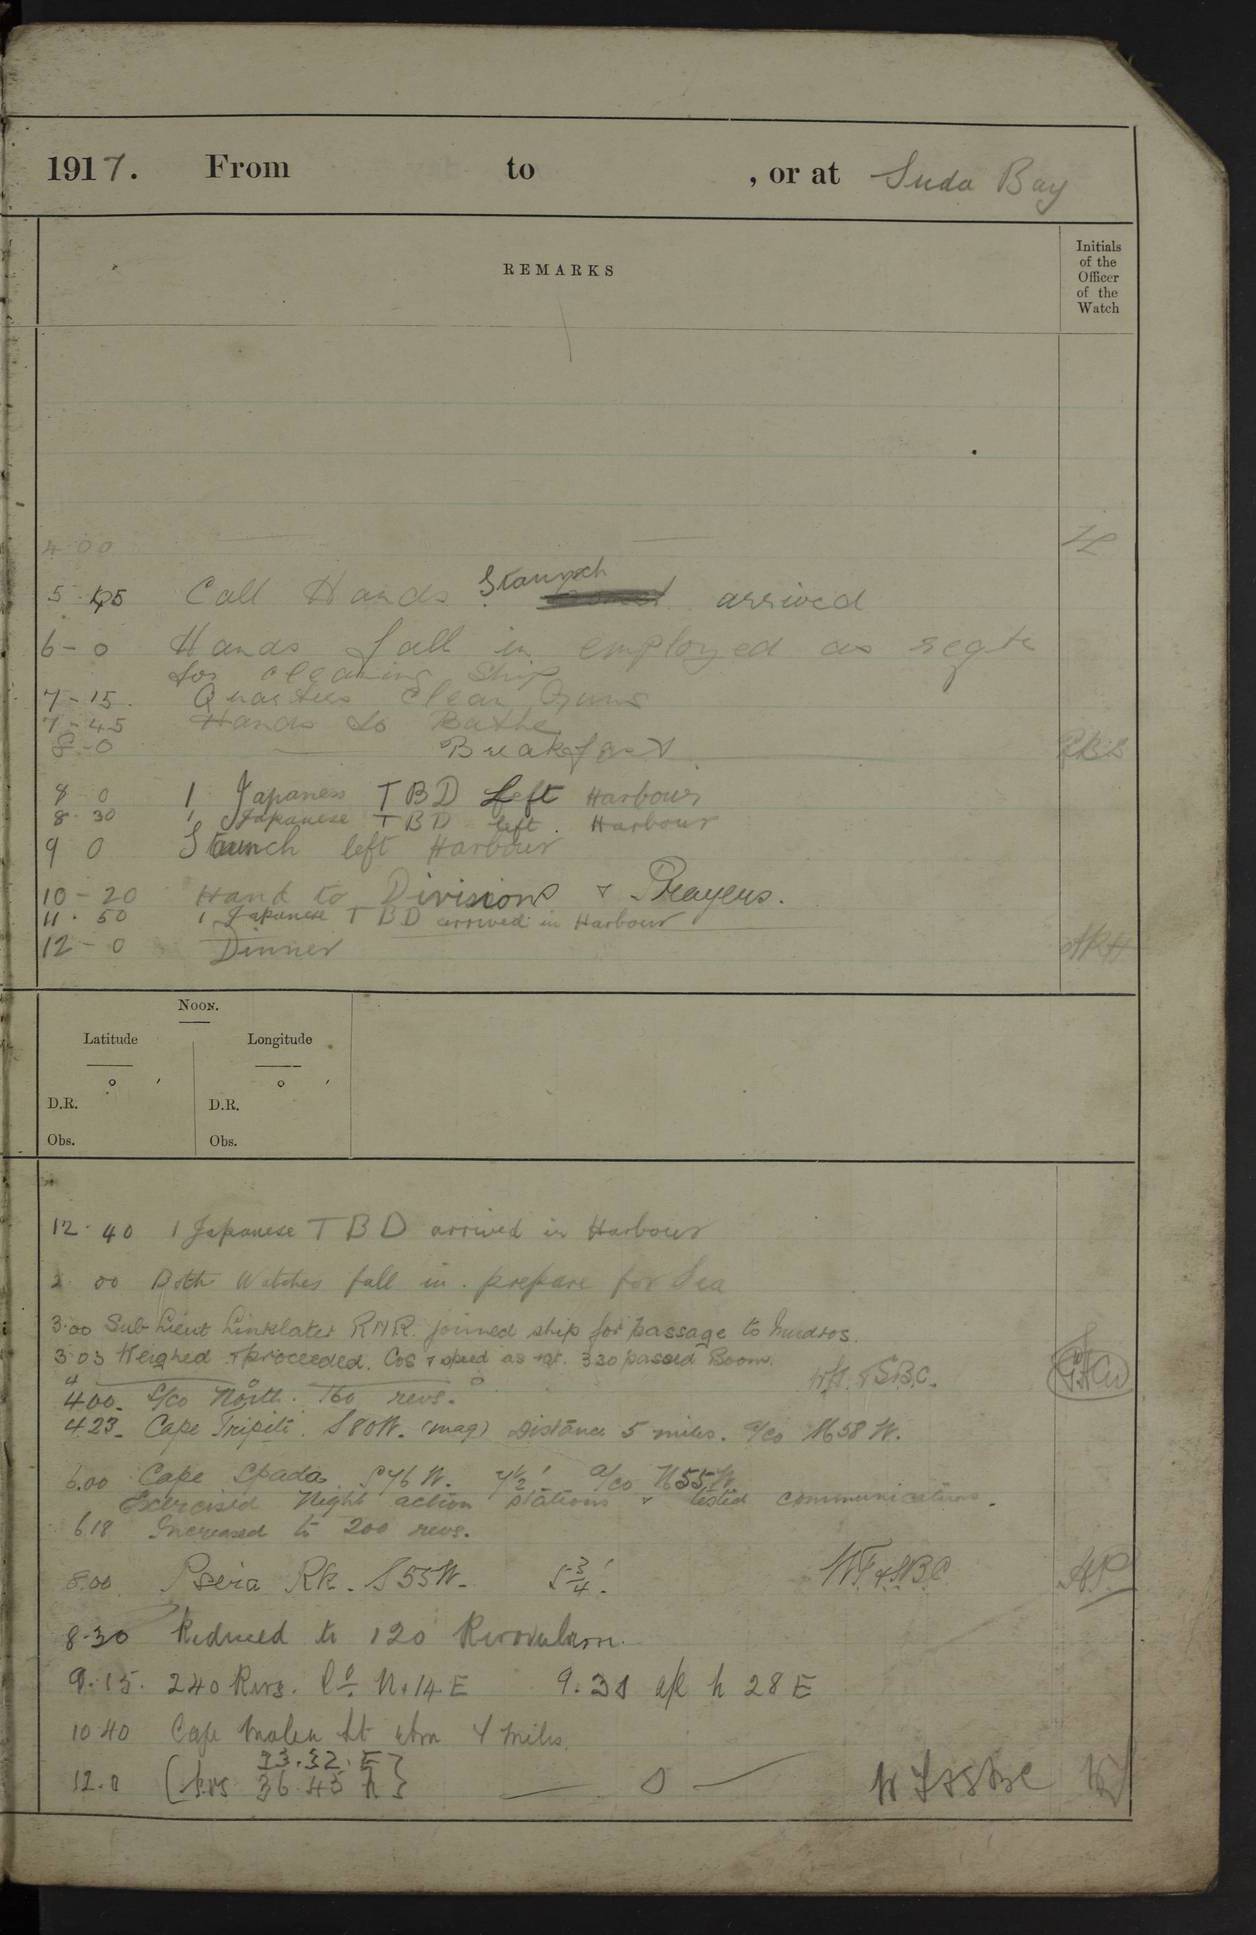 1917. From to , or at Suda Bay
REMARKS
Initials
of the
Officer
of the
Watch
4 00
5 45 Call Hands Staunch arrived
6 - 0 Hands fall in employed as reqte
for cleaning Ship
7 - 15. Quarters clean Guns
7 - 45 Hands to Bathe
8 - 0 Breakfast
8 0 1 Japanese TBD left Harbour
8. 30 1 Japanese TBD left. Harbour
9 0 Staunch left Harbour
10 - 20 Hand to Divisions & Prayers.
11. 50 1 Japanese TBD arrived in Harbour
12 - 0 Dinner
Noon.
Latitude Longitude
° ′ ° ′
D.R. D.R.
Obs. Obs.
12. 40 1 Japanese TBD arrived in Harbour
2 00 Both Watches fall in. prepare for Sea
3.00 Sub Lieut Linklater RNR. joined ship for passage to Mudros.
3.03 Weighed & proceeded. Cos & speed as req. 3 20 passed Boom.
4.00. A/co North. 160 revs.
4.23. Cape Tripiti. S 80 W. (mag) Distance 5 miles. a/co N 58 W.
6.00 Cape Spada S 46 W. 7½′ a/co N 55 W
Exercised Night action stations & tested communications.
6.18 Increased to 200 revs.
8.00 Rk. S 55 W. 5¾′.
8.30 Reduced to 120 Revolutions.
9.15. 240 Revs. Co. N. 14 E 9.38 a/c N 28 E
10 40 Cape Malea Lt abm 4 miles.
23. 32. E
12.0 36 45 N